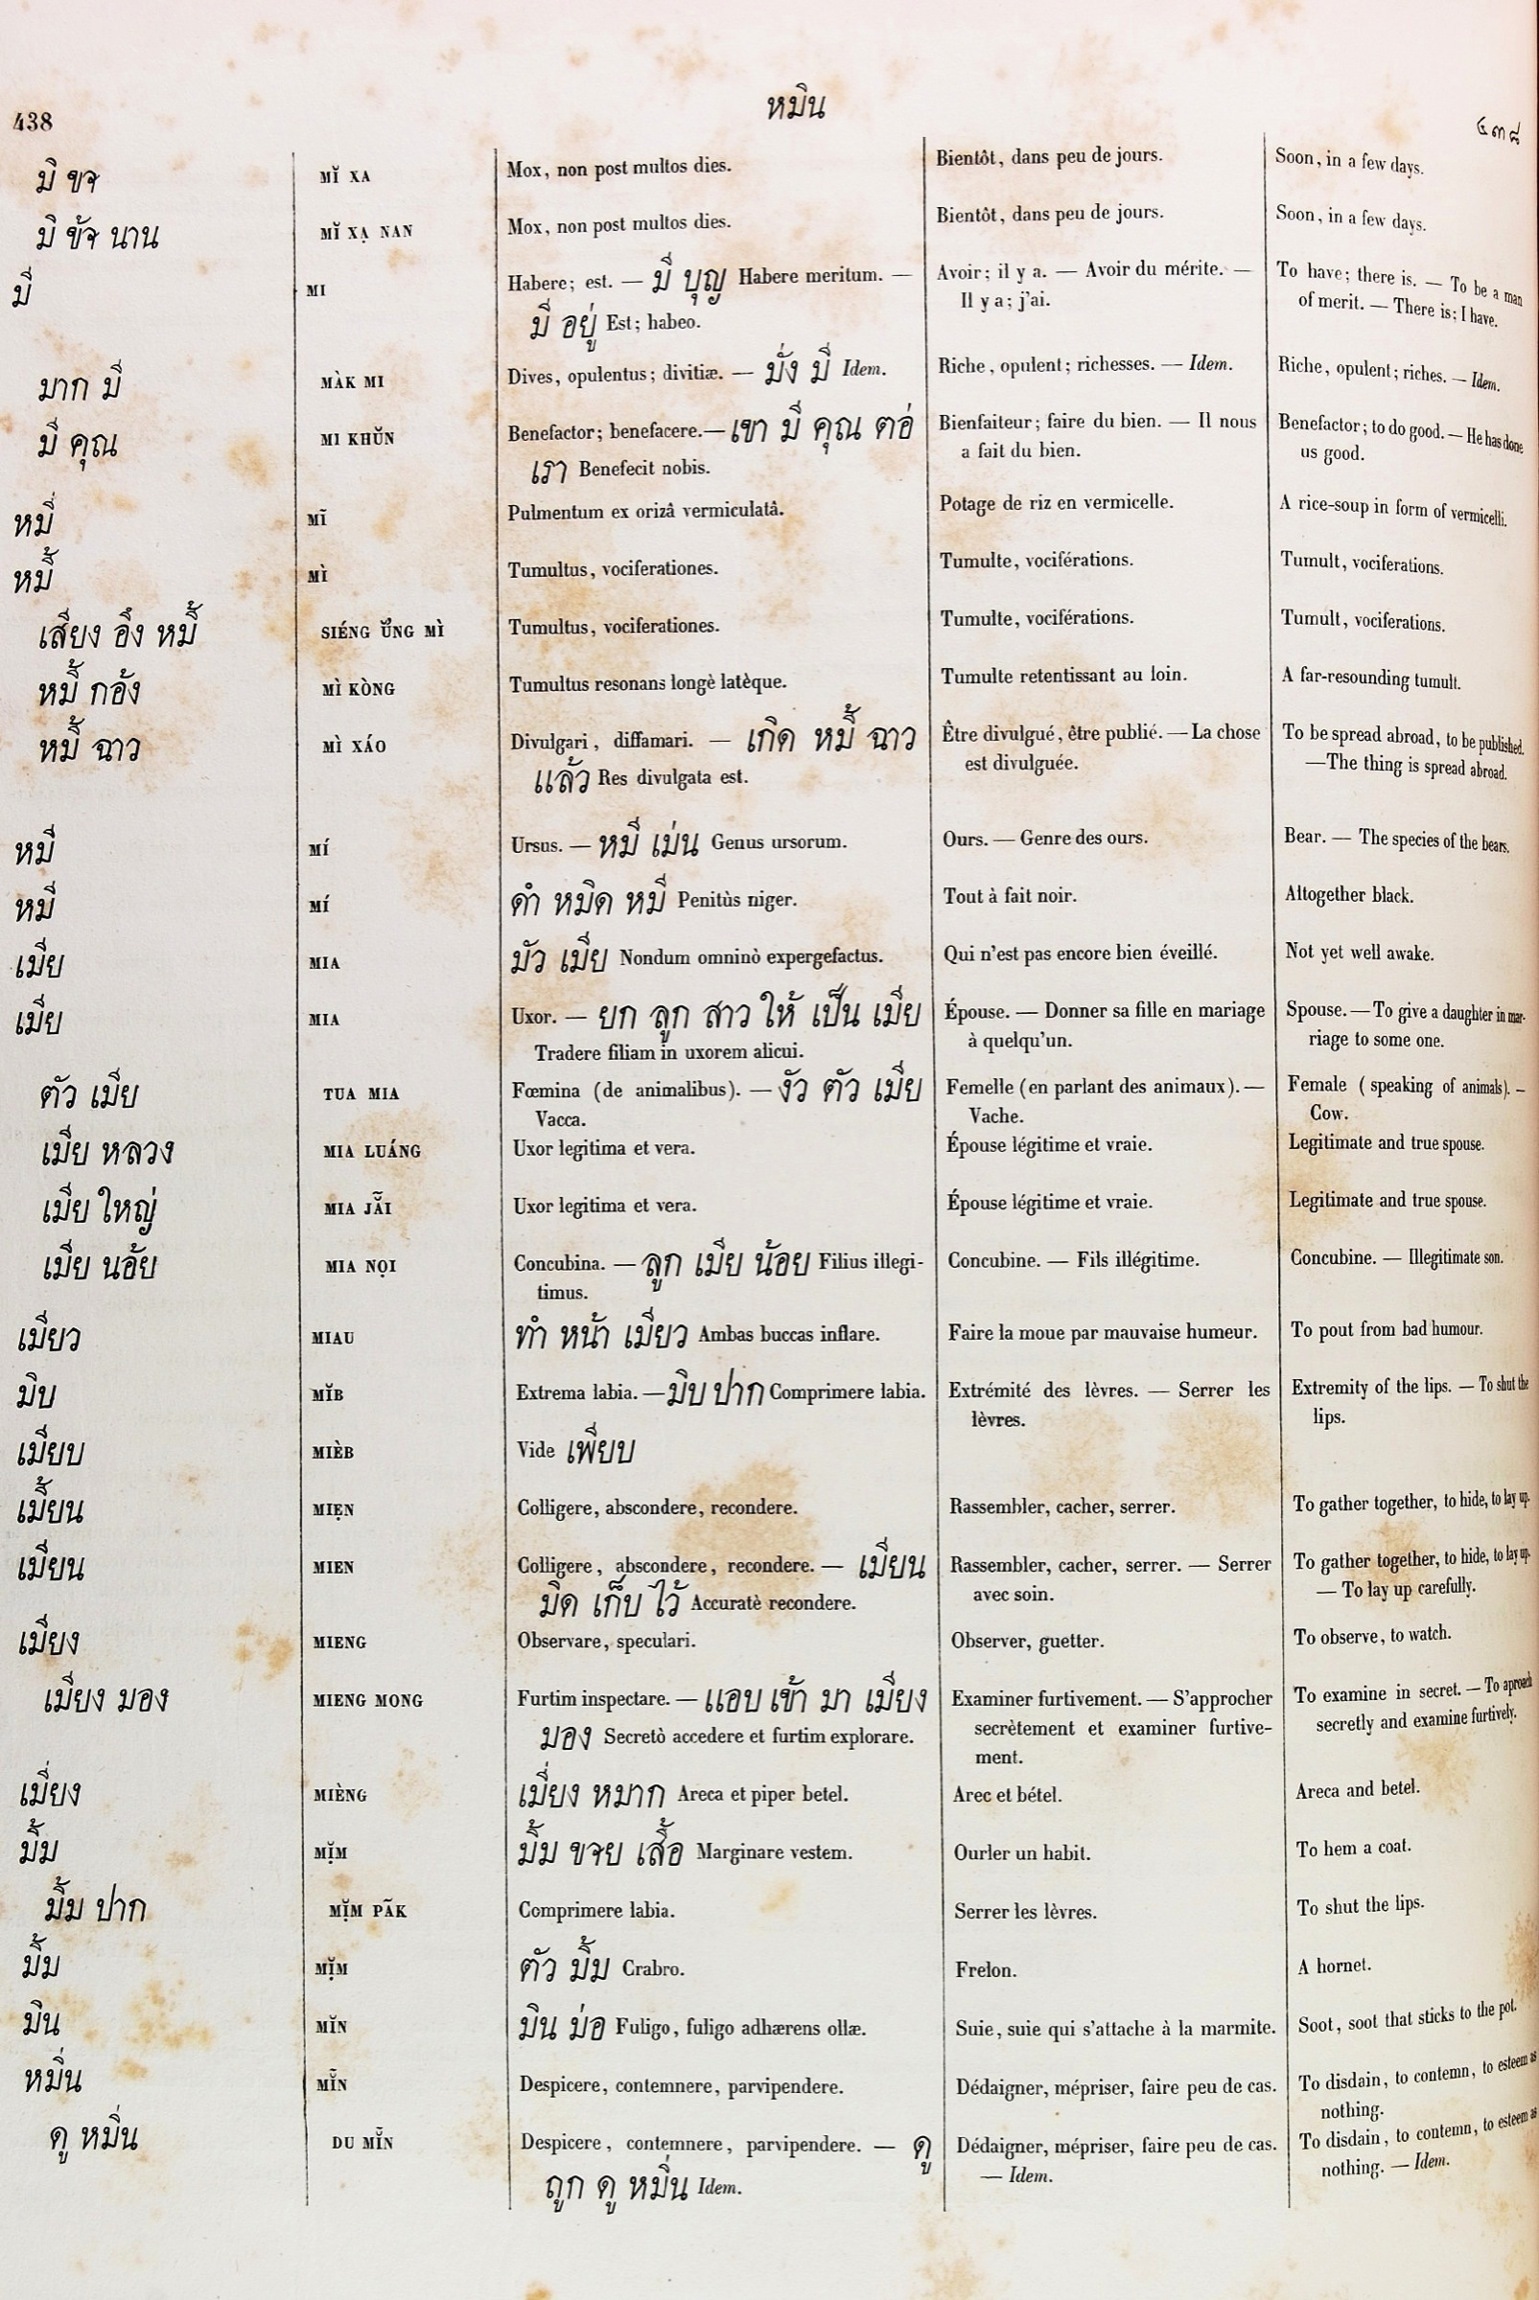 438
หมิน
๔๓๘
มิ ขา MĬ XA Mox, non post multos dies. Bientôt, dans peu de jours. Soon, in a few days.
มิ ข้า นาน MĬ XẠ NAN Mox, non post multos dies. Bientôt, dans peu de jours. Soon, in a few days.
มี MI Habere; est. — มี บุญ Habere meritum. — Avoir; il y a. — Avoir du mérite. — To have; there is. — To be a man
มี อยู่ Est; habeo. Il y a; j'ai. of merit. — There is; I have.
มาก มี MÀK MI Dives, opulentus; divitiæ. — มั่ง มี Idem. Riche, opulent; richesses. — Idem. Riche, opulent; riches. — Idem.
มี คุณ MI KHŬN Benefactor; benefacere. — เขา มี คุณ ตอ่ Bienfaiteur; faire du bien. — Il nous Benefactor; to do good. — He has done
เรา Benefecit nobis. a fait du bien. us good.
หมี่ MĨ Pulmentum ex orizâ vermiculatâ. Potage de riz en vermicelle. A rice-soup in form of vermicelli.
หมี้ MÌ Tumultus, vociferationes. Tumulte, vociférations. Tumult, vociferations.
เสียง อึง หมี้ SIÉNG ŬNG MÌ Tumultus, vociferationes. Tumulte, vociférations. Tumult, vociferations.
หมี้ กอ้ง MÌ KÒNG Tumultus resonans longè latèque. Tumulte retentissant au loin. A far-resounding tumult.
หมี้ ฉาว MÌ XÁO Divulgari, diffamari. — เกิด หมี้ ฉาว Être divulgué, être publié. — La chose To be spread abroad, to be published.
แล้ว Res divulgata est. est divulguée. — The thing is spread abroad.
หมี MÍ Ursus. — หมี เม่น Genus ursorum. Ours. — Genre des ours. Bear. — The species of the bears.
หมี MÍ ดำ หมิด หมี Penitùs niger. Tout à fait noir. Altogether black.
เมีย MIA มัว เมีย Nondum omninò expergefactus. Qui n'est pas encore bien éveillé. Not yet well awake.
เมีย MIA Uxor. — ยก ลูก สาว ให้ เป็น เมีย Épouse. — Donner sa fille en mariage Spouse. — To give a daughter in mar-
Tradere filiam in uxorem alicui. à quelqu'un. riage to some one.
ตัว เมีย TUA MIA Fœmina (de animalibus). — งัว ตัว เมีย Femelle (en parlant des animaux). — Female (speaking of animals). —
Vacca. Vache. Cow.
เมีย หลวง MIA LUÁNG Uxor legitima et vera. Épouse légitime et vraie. Legitimate and true spouse.
เมีย ใหญ่ MIA JẲI Uxor legitima et vera. Épouse légitime et vraie. Legitimate and true spouse.
เมีย นอ้ย MIA NỌI Concubina. — ลูก เมีย น้อย Filius illegi- Concubine. — Fils illégitime. Concubine. — Illegitimate son.
timus.
เมียว MIAU ทำ หน้า เมียว Ambas buccas inflare. Faire la moue par mauvaise humeur. To pout from bad humour.
มิบ MĬB Extrema labia. — มิบ ปาก Comprimere labia. Extrémité des lèvres. — Serrer les Extremity of the lips. — To shut the
lèvres. lips.
เมียบ MIÈB Vide เพียบ
เมี้ยน MIẸN Colligere, abscondere, recondere. Rassembler, cacher, serrer. To gather together, to hide, to lay up.
เมียน MIEN Colligere, abscondere, recondere. — เมียน Rassembler, cacher, serrer. — Serrer To gather together, to hide, to lay up.
มิด เก็บ ไว้ Accuratè recondere. avec soin. — To lay up carefully.
เมียง MIENG Observare, speculari. Observer, guetter. To observe, to watch.
เมียง มอง MIENG MONG Furtim inspectare. — แอบ เข้า มา เมียง Examiner furtivement. — S'approcher To examine in secret. — To aproach
มอง Secretò accedere et furtim explorare. secrètement et examiner furtive- secretly and examine furtively.
ment.
เมี่ยง MIÈNG เมี่ยง หมาก Areca et piper betel. Arec et bétel. Areca and betel.
มิ้ม MỊ̆M มิ้ม ขาย เสื้อ Marginare vestem. Ourler un habit. To hem a coat.
มิ้ม ปาก MỊ̆M PÃK Comprimere labia. Serrer les lèvres. To shut the lips.
มิ้ม MỊ̆M ตัว มิ้ม Crabro. Frelon. A hornet.
มิน MĬN มิน ม่อ Fuligo, fuligo adhærens ollæ. Suie, suie qui s'attache à la marmite. Soot, soot that sticks to the pot.
หมิ่น MĬ̃N Despicere, contemnere, parvipendere. Dédaigner, mépriser, faire peu de cas. To disdain, to contemn, to esteem as
nothing.
ดู หมิ่น DU MĬ̃N Despicere, contemnere, parvipendere. — ดู Dédaigner, mépriser, faire peu de cas. To disdain, to contemn, to esteem as
ถูก ดู หมิ่น Idem. — Idem. nothing. — Idem.